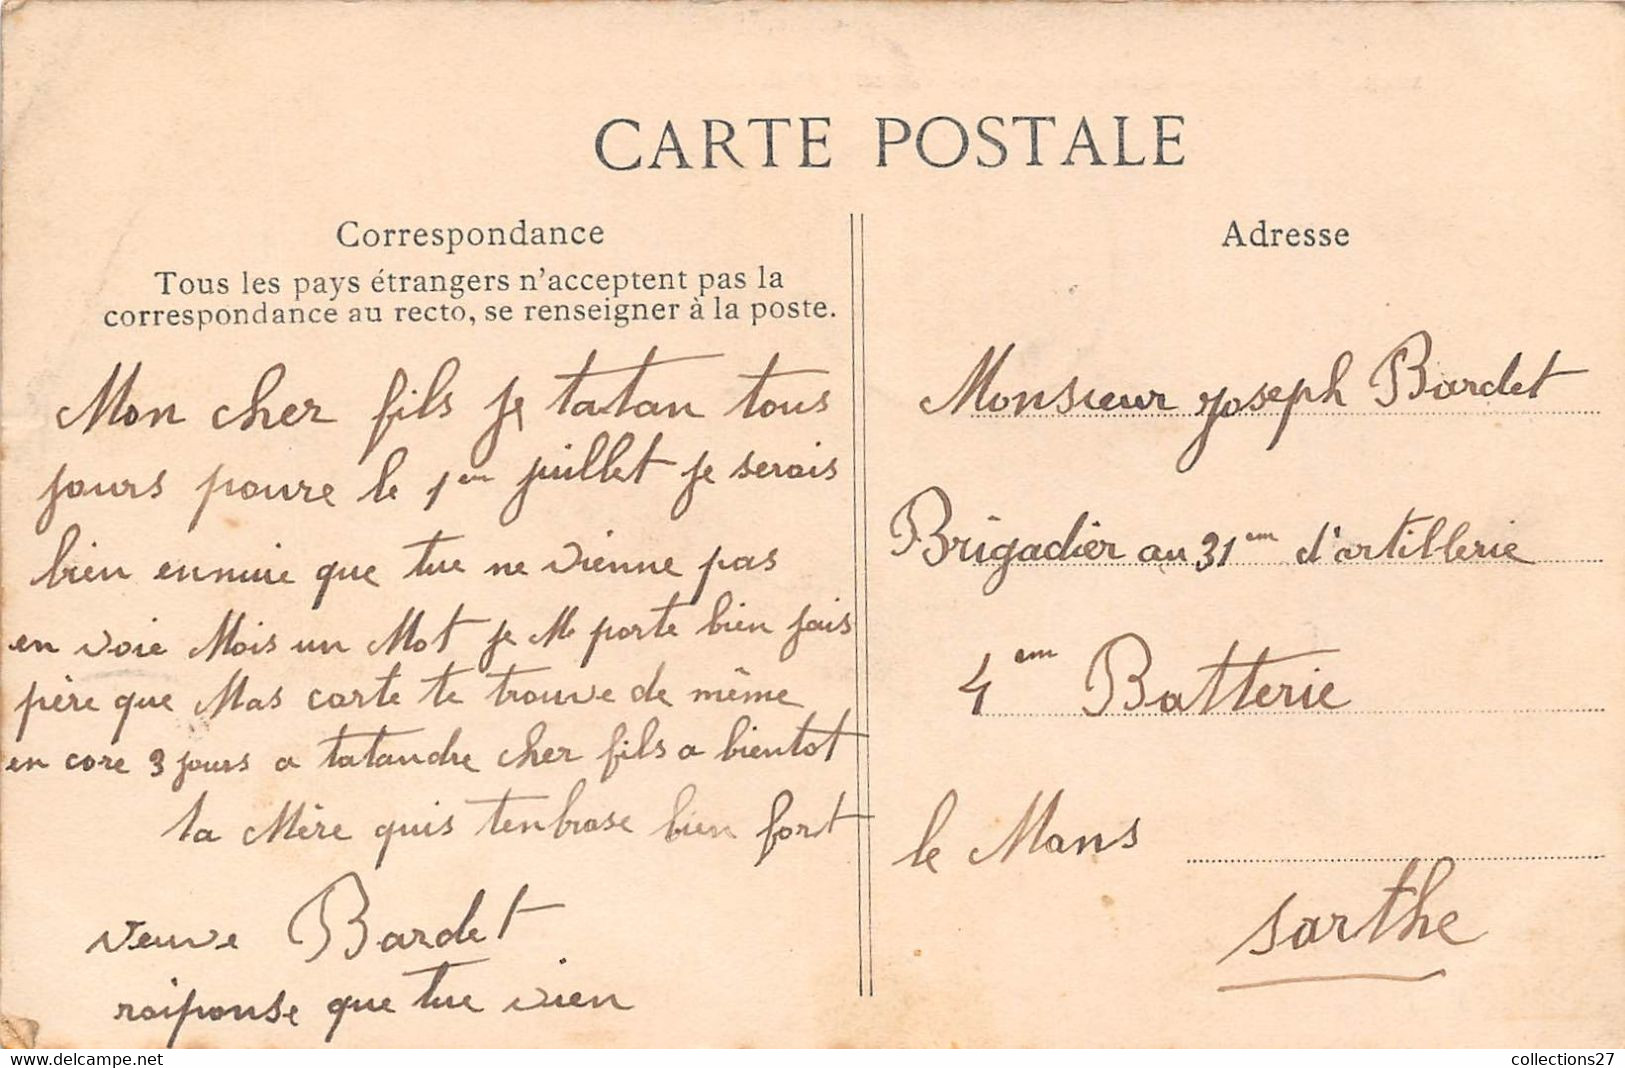 CARTE POSTALE
Correspondance
Tous les pays étrangers n'acceptent pas la
correspondance au recto, se renseigner à la poste.
Mon cher fils je tatan tous
jours poure le 1er juillet je serais
bien ennuie que tue ne vienne pas
en voie Mois un Mot je Me porte bien jais
père que Mas carte te trouve de même
en core 3 jours a tatandre cher fils a bientot
ta Mère quis tenbrase bien fort
veuve Bardet
raiponse que tue vien
Adresse
Monsieur Joseph Bardet
Brigadier au 31em d'artillerie
4em Batterie
le Mans
Sarthe
collections27